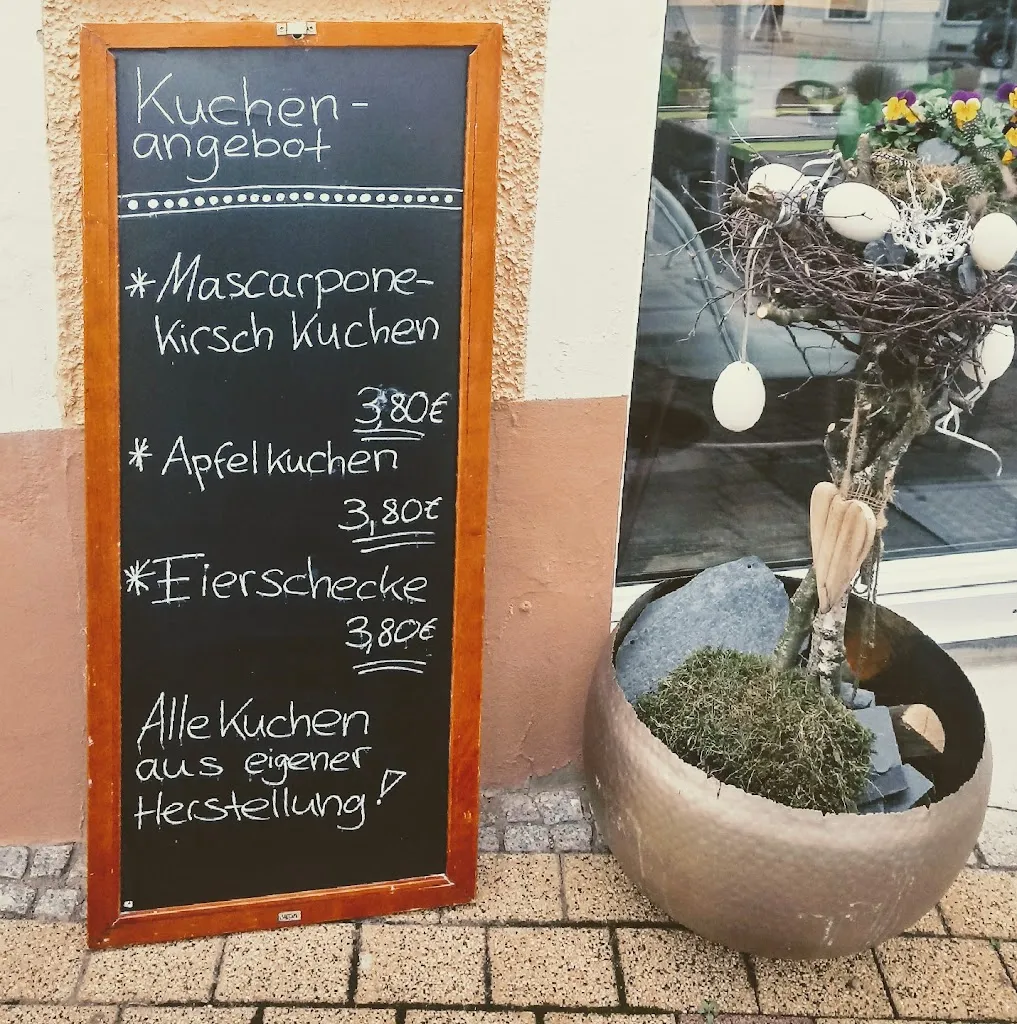 Kuchen-
angebot
* Mascarpone-
Kirsch Kuchen
3,80€
* Apfelkuchen
3,80€
* Eierschecke
3,80€
Alle Kuchen
aus eigener
Herstellung!